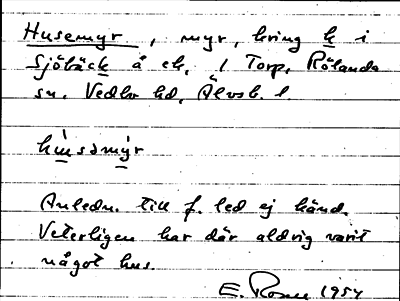 Husemyr, myr, kring k i
Sjöbäck å ek, 1 Torp, Rölanda
sn. Vedbo hd, Älvsb. l
húsəmýr
Anledn. till f. led ej känd.
Veterligen har där aldrig varit
något hus.
E. 1954